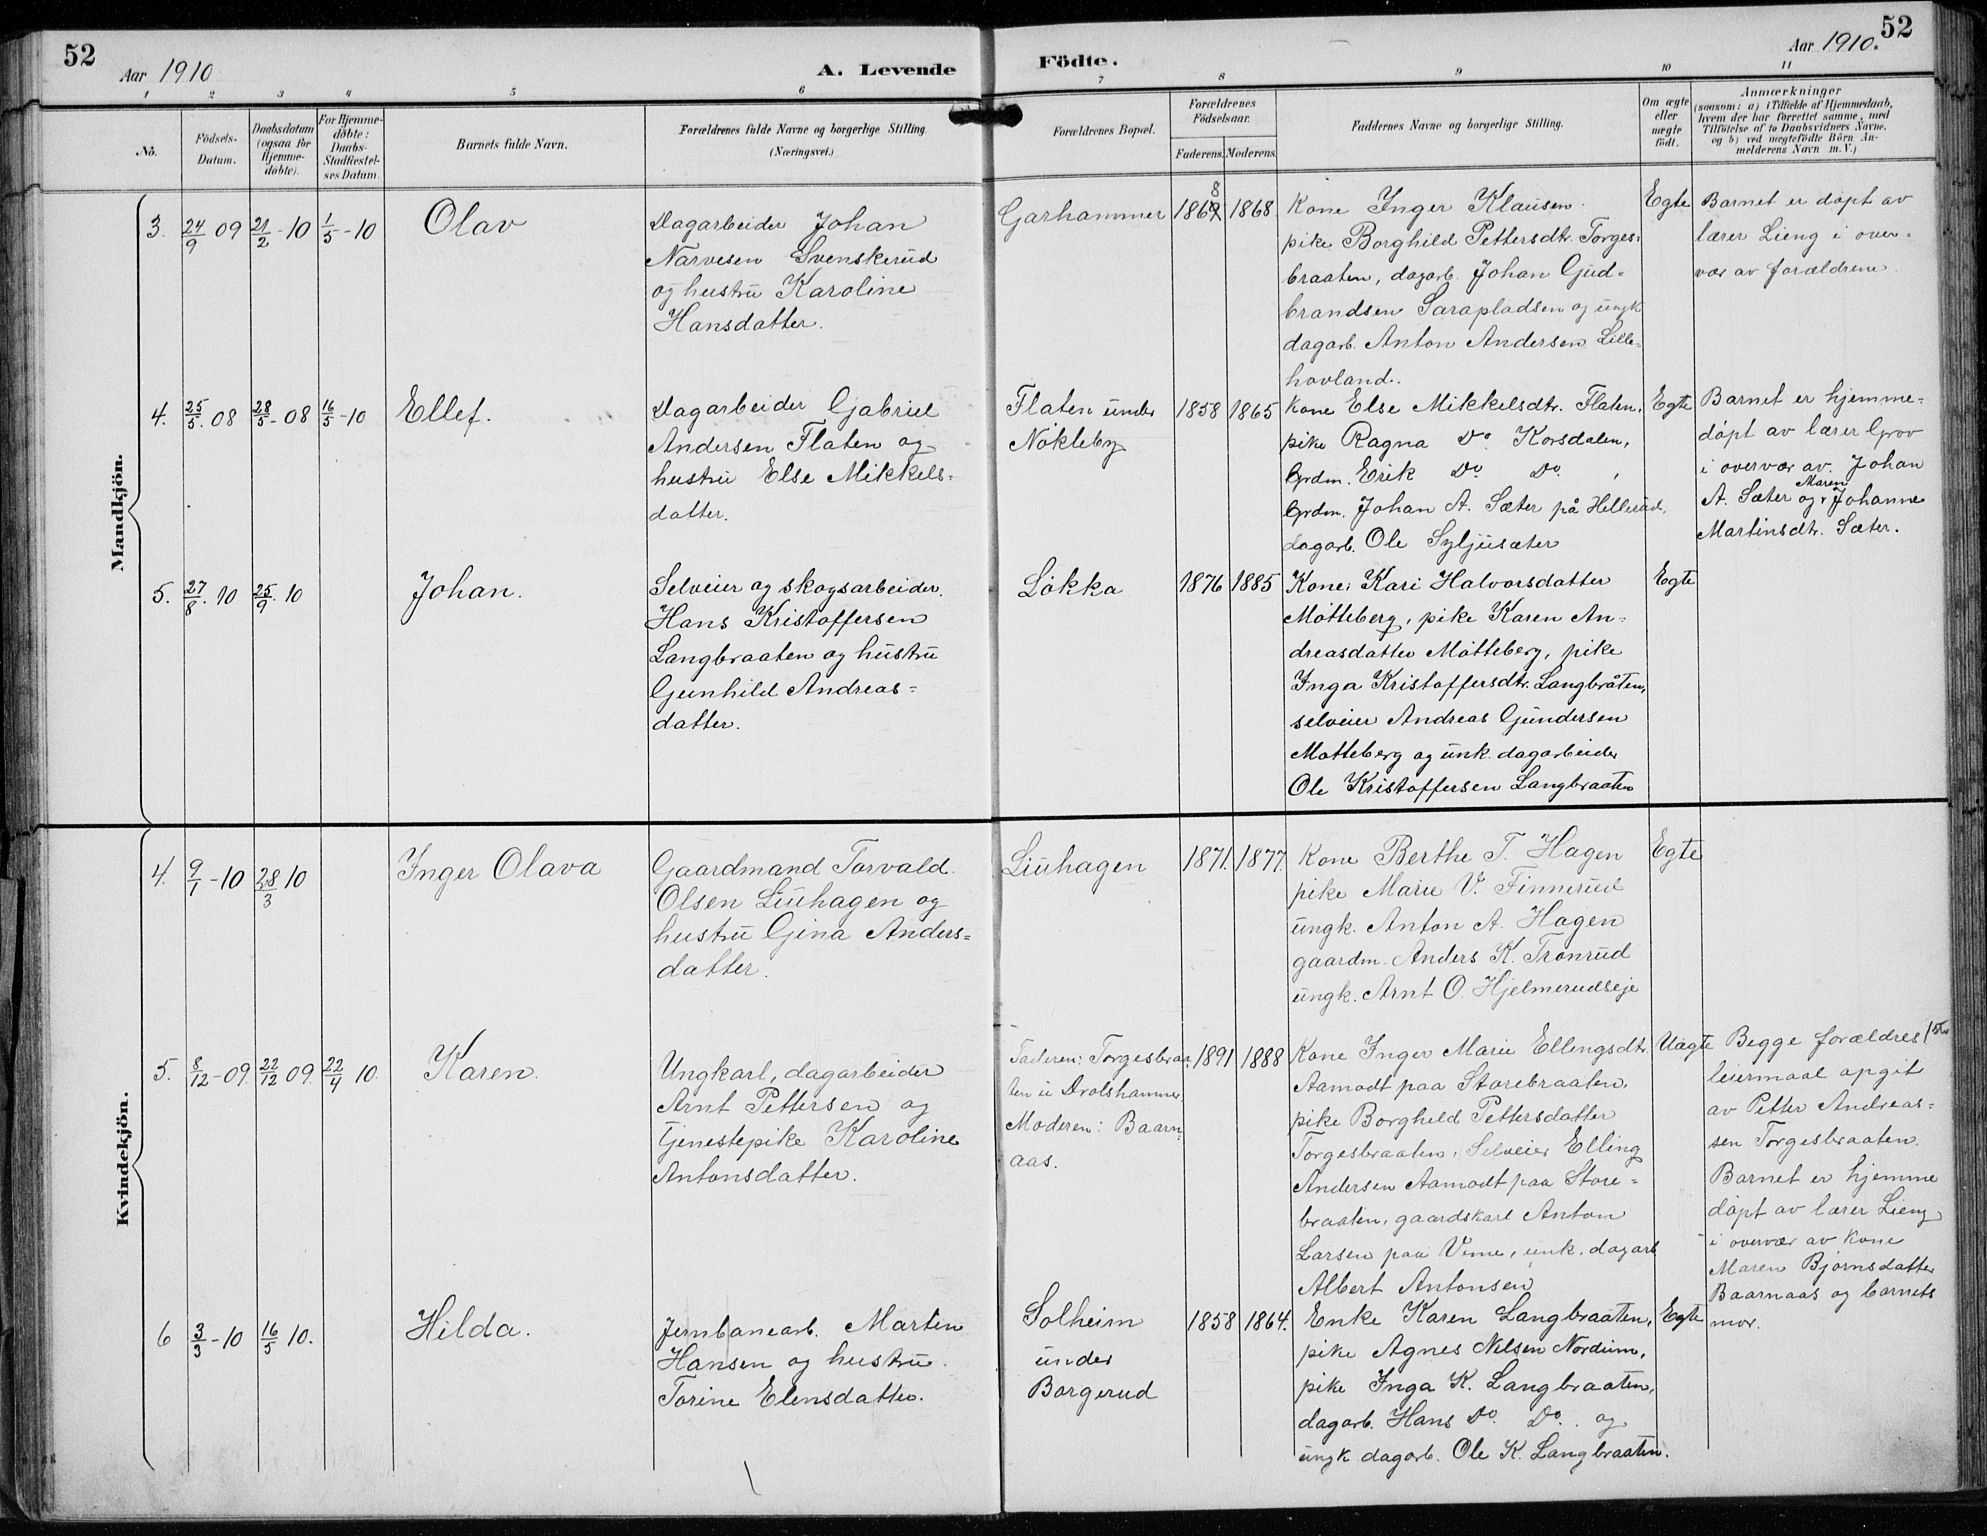 52
Aar 1910
A. Levende
Födte.
Aar 1910.
52
1 2 3 4 5 6 7 8 9 10 11
No.
Födsels-
Datum.
Daabsdatum
(ogsaa for
Hjemme-
döbte).
For Hjemme-
döbte:
Daabs-
Stadfæstel-
ses Datum.
Barnets fulde Navn.
Forældrenes fulde Navne og borgerlige Stilling.
(Næringsvei.)
Forældrenes Bopæl.
Forældrenes
Födselsaar.
Faderens. Moderens.
Faddernes Navne og borgerlige Stilling.
Om ægte
eller
uægte
födt.
Anmærkninger
(saasom: a) i Tilfælde af Hjemmedaab,
hvem der har forrettet samme, med
Tilföielse af to Daabsvidners Navne.
og b) ved uægtefödte Börn An-
melderens Navn m. V.)
Mandkjön.
3. 24/9 09 21/2 - 10 1/5 - 10
Olav
Dagarbeider Johan
Narvesen Svenskerud
og hustru Karoline
Hansdatter.
Garhammer
8
1867 1868
Kone Inger Klausen.
pike Borghild Pettersdtr. Torges-
braaten, dagarb. Johan Gud-
brandsen Sarapladsen og ungk
dagarb. Anton Andersen Lille-
hovland.
Egte
Barnet er døpt av
lærer Lieng i over-
vær av forældrene.
4. 25/5. 08 28/5 - 08 16/5 - 10
Ellef.
Dagarbeider Gabriel
Andersen Flaten og
hustru Else Mikkels-
datter.
Flaten under
Nøkleby
1858 1865
Kone Else Mikkelsdtr. Flaten,
pike Ragna Do Korsdalen,
Grdm. Erik Do Do,
Grdm. Johan A. Sæter på Hellerud,
dagarb. Ole Syljusæter
Egte
Barnet er hjemme-
døpt av lærer Grov
i overvær av. Johan
Maren
A. Sæter og Johanne
Martinsdtr. Sæter.
5. 27/8. 10 25/9. 10
Johan.
Selveier og skogsarbeider.
Hans Kristoffersen
Langbraaten og hustru
Gunhild Andreas-
datter.
Løkka
1876 1885
Kone, Kari Halvorsdatter
Møtteberg, pike Karen An-
dreasdatter Møtteberg, pike
Inga Kristoffersdtr. Langbråten,
selveier Andreas Gundersen
Møtteberg og unk. dagarbeider
Ole Kristoffersen Langbraaten
Egte
Kvindekjön.
4. 9/1 - 10 28/3 10
Inger Olava
Gaardmand Torvald
Olsen Liuhagen og
hustru Gina Anders-
datter.
Liuhagen
1871. 1877.
Kone Berthe T. Hagen
pike Marie V. Finnerud
ungk. Anton A. Hagen
gaardm. Anders K. Tronrud
ungk. Arnt O. Hjelmerudseje
Egte
5. 8/12 - 09. 22/12 09. 22/4 10.
Karen.
Ungkarl, dagarbeider
Arnt Pettersen og
tjenestepike Karoline
Antonsdatter.
Faderen: Torgesbraa-
ten u Drolshammer
Moderen: Baarn-
aas.
1891 1888
Kone Inger Marie Ellingsdtr.
Aamodt paa Storebraaten,
pike Borghild Pettersdatter
Torgesbraaten, Selveier Elling
Andersen Aamodt paa Store-
braaten, gaardskarl Anton
Larsen paa Veme, unk. dagarb
Albert Antonsen
Uægte
Begge forældres 1ste
leiermaal opgit
av Petter Andreas-
sen Torgesbraaten.
Barnet er hjemme
døpt av lærer Lieng
i overvær av kone
Maren Bjørnsdatter
Baarnaas og barnets
mor.
6 3/3 - 10 16/5 10.
Hilda.
Jernbanearb. Martin
Hansen og hustru.
Torine Elensdatter.
Solheim
under
Borgerud
1858 1864.
Enke Karen Langbraaten,
pike Agnes Nilsen Nordum,
pike Inga K. Langbraaten,
dagarb. Hans Do. Do. og
ungk dagarb. Ole K. Langbraaten.
Egte